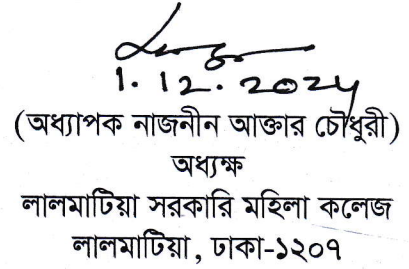 1.12.2024
(অধ্যাপক নাজনীন আক্তার চৌধুরী)
অধ্যক্ষ
লালমাটিয়া সরকারি মহিলা কলেজ
লালমাটিয়া, ঢাকা-১২০৭